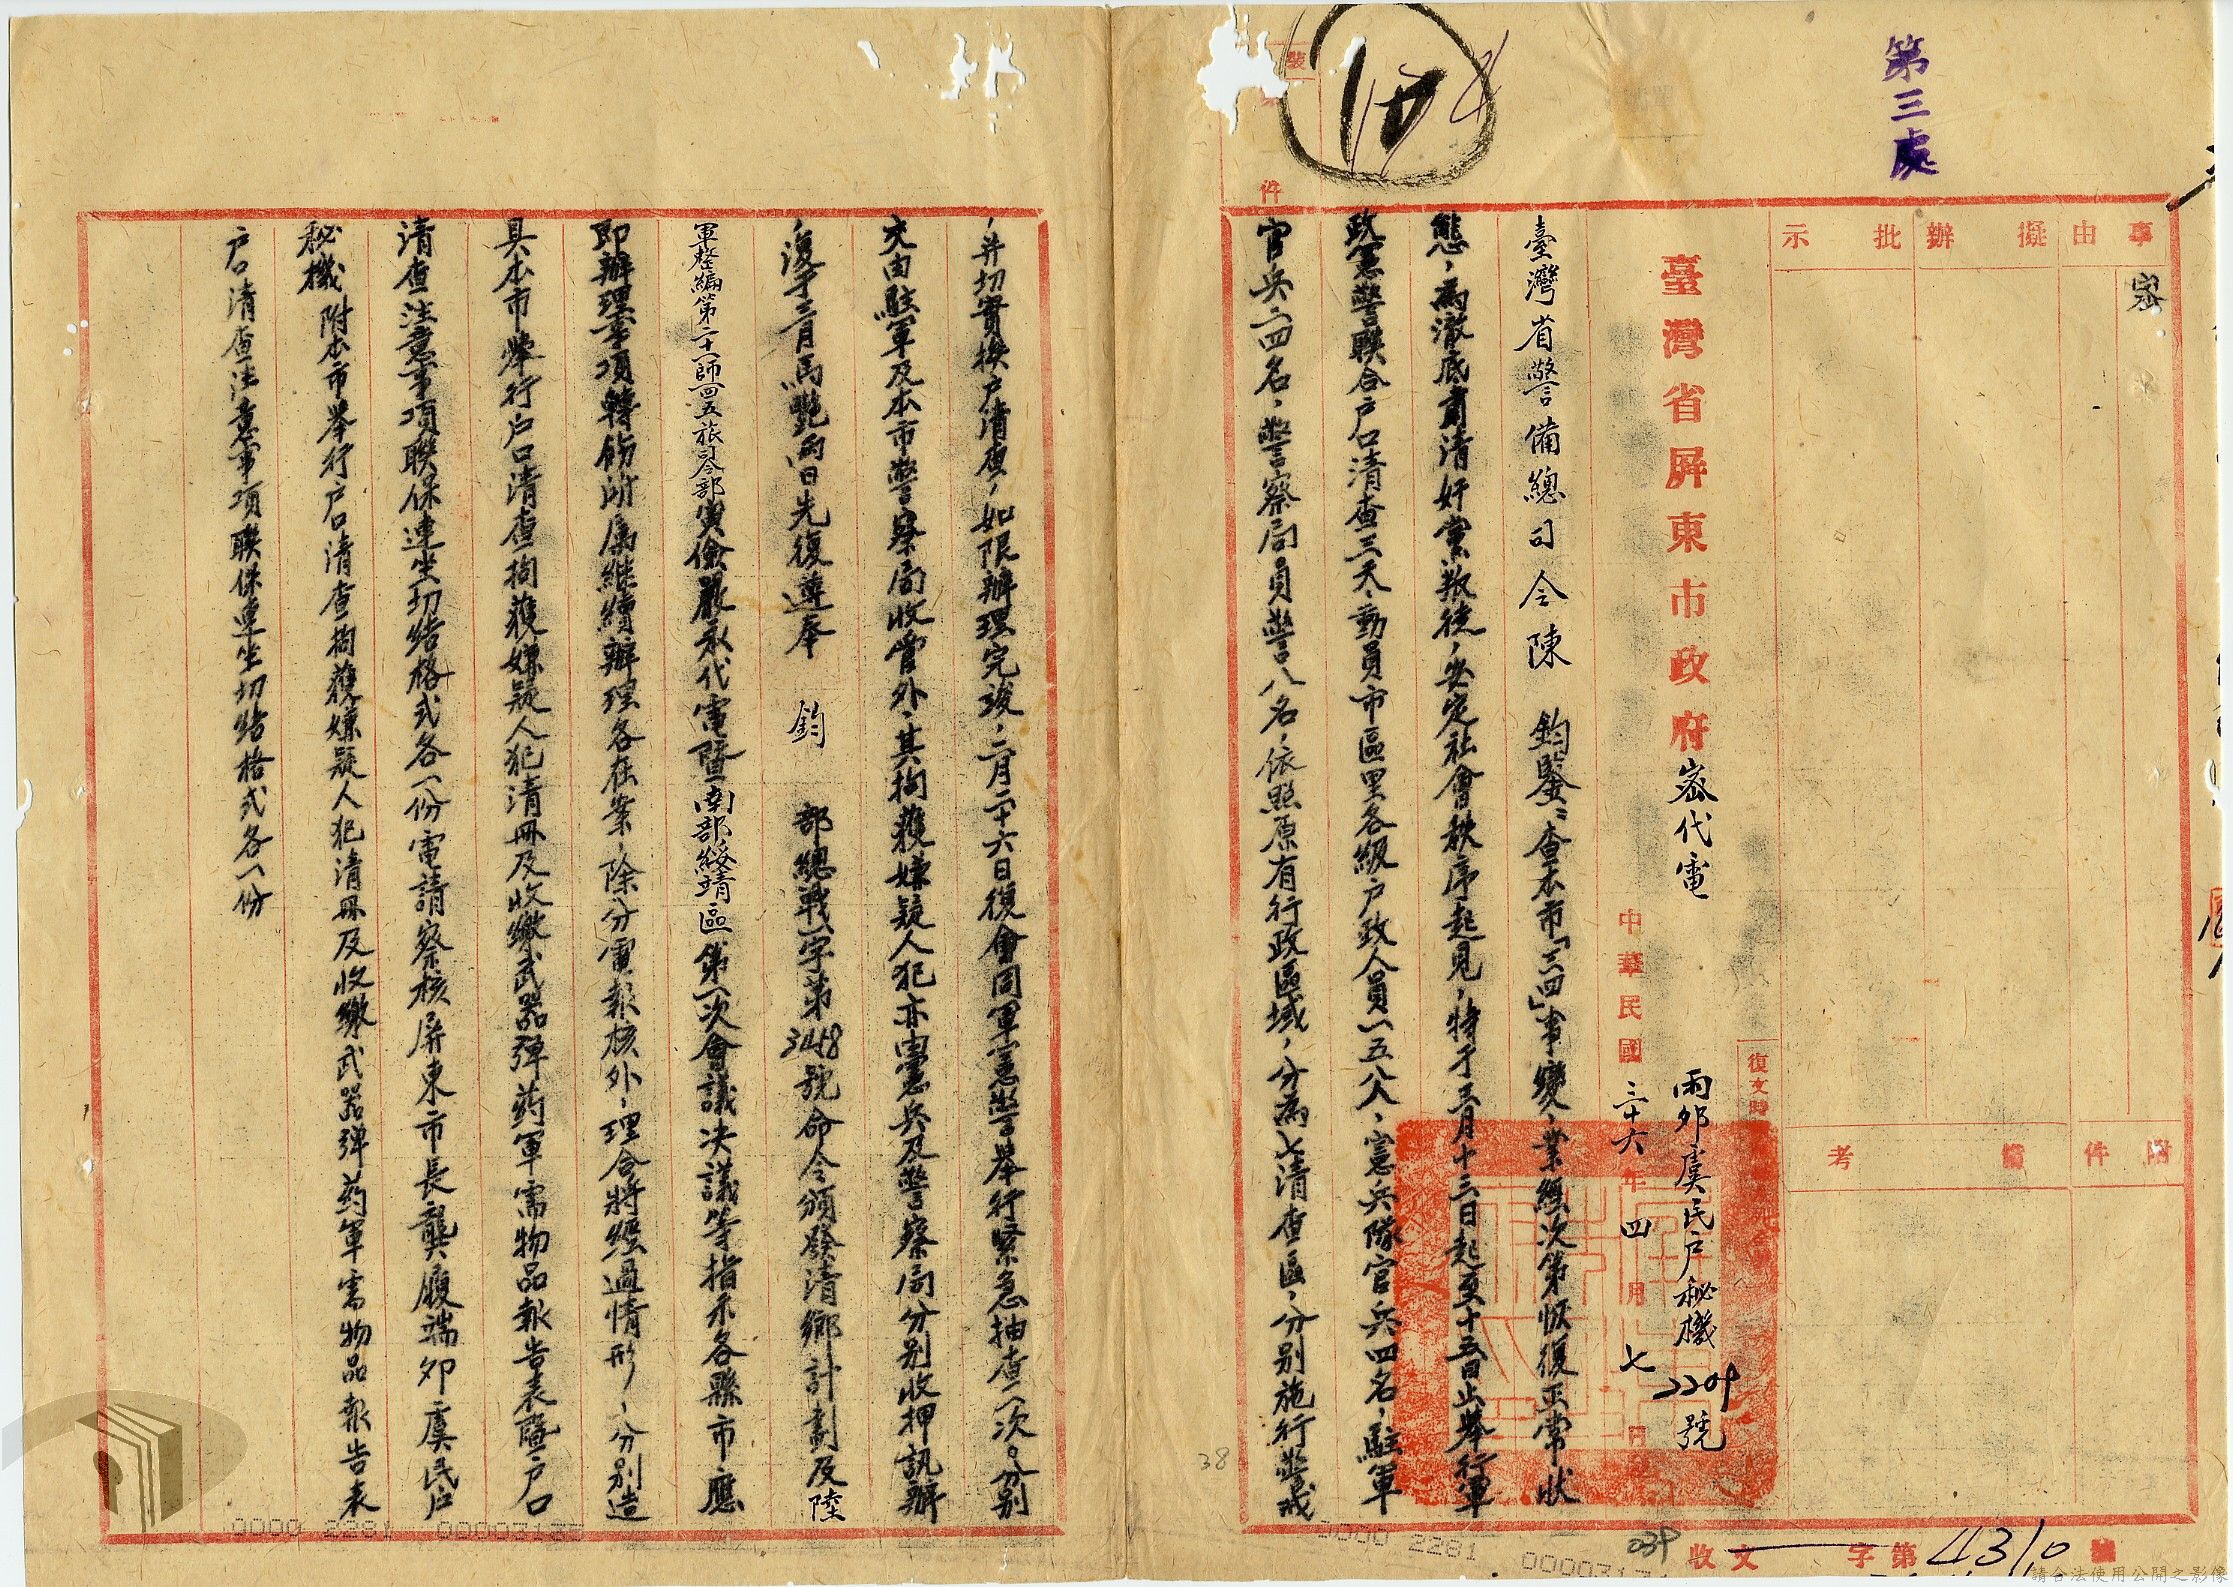 第三處
事由
擬辦
批示
附件
備考
密
臺灣省屏東市政府密代電
復文時
雨卯虞民戶秘機2209號
中華民國三十六年四月七日
臺灣省警備總司令陳 鈞鑒:查本市「三四」事變,業經次第恢復正常狀
態,為澈底肅清奸黨叛徒,安定社會秩序起見,特于三月十三日起至十五日止舉行軍
政憲警聯合戶口清查三天,動員市區里各級戶政人員一五八人,憲兵隊官兵四名,駐軍
官兵二四名,警察局員警八名,依照原有行政區域,分為七清查區,分別施行警戒
,并切實挨戶清查,如限辦理完竣,二月二十六日復會同軍憲警舉行緊急抽查一次。分別
交由駐軍及本市警察局收管外,其拘獲嫌疑人犯亦由憲兵及警察局分別收押訊辦
,復于三月馬艷兩日先後遵奉 鈞 部總戰一字第3448號命令頒發清鄉計劃及陸
軍整編第二十一師一四五旅司令部寅儉嚴承代電暨南部綏靖區第一次會議決議等指示各縣市應
即辦理事項轉飭所屬繼續辦理各在案,除分電報核外,理合將經過情形,分別造
具本市舉行戶口清查拘獲嫌疑人犯清冊及收繳武器彈药軍需物品報告表暨戶口
清查注意事項聯保連坐切結格式各一份電請察核屏東市長龔履端卯虞民戶
秘機 附本市舉行戶口清查拘獲嫌疑人犯清冊及收繳武器彈药軍需物品報告表
戶口清查注意事項聯保連坐切結格式各一份
收文 字第4310號
039
38
0000 2281
0000 2281
請合法使用公開之影像